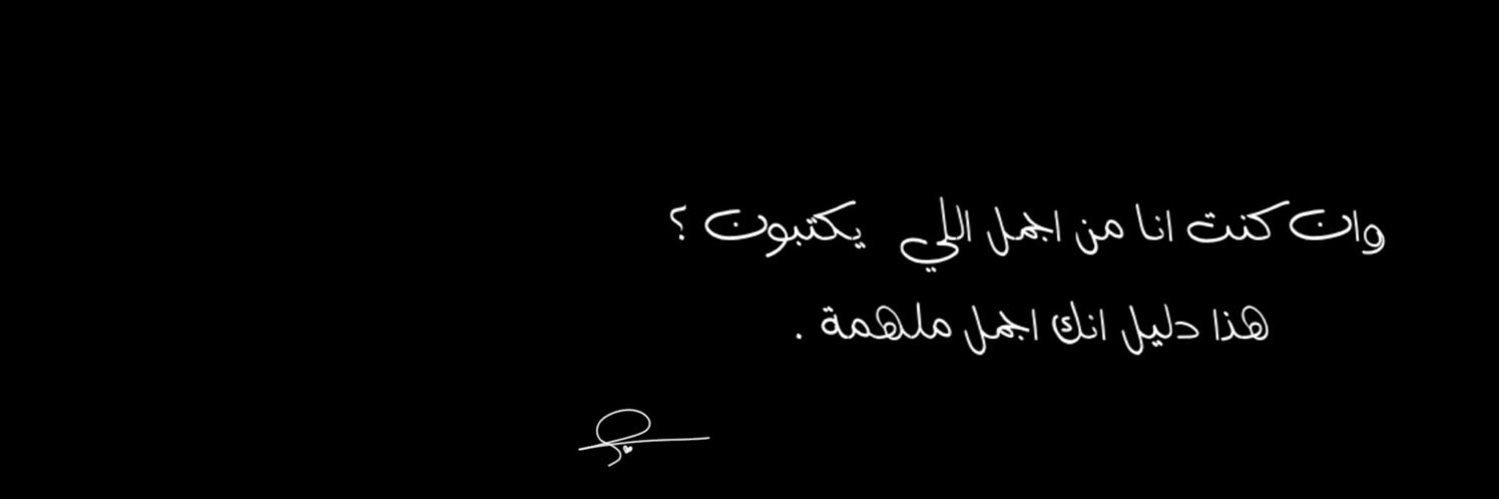 وان كنت انا من اجمل اللي يكتبون ؟
هذا دليل انك اجمل ملهمة .